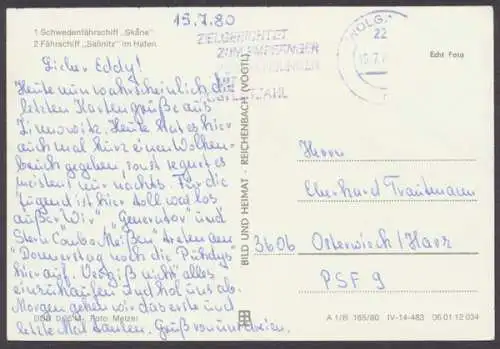 15.7.80
1 Schwedenfährschiff „Skåne"
2 Fährschiff „Saßnitz" im Hafen
ZIELGERICHTET
ZUM EMPFÄNGER
22
Echt Foto
Lieber Eddy!
Heute nun wahrscheinlich die
letzten Kartengrüße aus
Zinnowitz. Heute hat es hier
auch mal kurz einen Wolken-
bruch gegeben, sonst regnet es
meistens nur nachts. Für die
Jugend ist hier toll was los
außer Wir" "Generator" und
Stern Combo Meißen" treten am
"Donnerstag noch die Puhdys"
hier auf. Vergiß nicht alles
einzukaufen und hol uns ab.
Morgen gehen wir das erste und
letzte Mal baden. Gruß von uns beiden.
BILD UND HEIMAT · REICHENBACH (VOGTL)
Herrn
Eberhard Trautmann
3606 Osterwieck/Harz
PSF 9
Foto: Melzer
A 1/B 165/80 IV-14-483 06 01 12 034